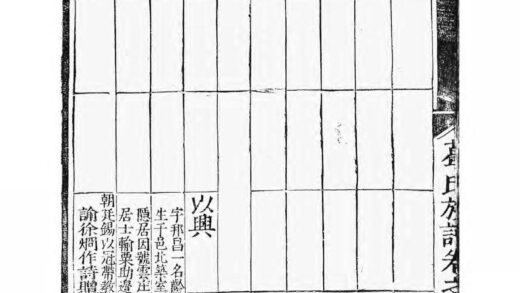 氏族譜卷之
以興
字邦昌一名齡
生于邑北築室
隱居因號雲庄
居士輸粟助邊
朝廷錫以冠帶教
諭徐作詩贈